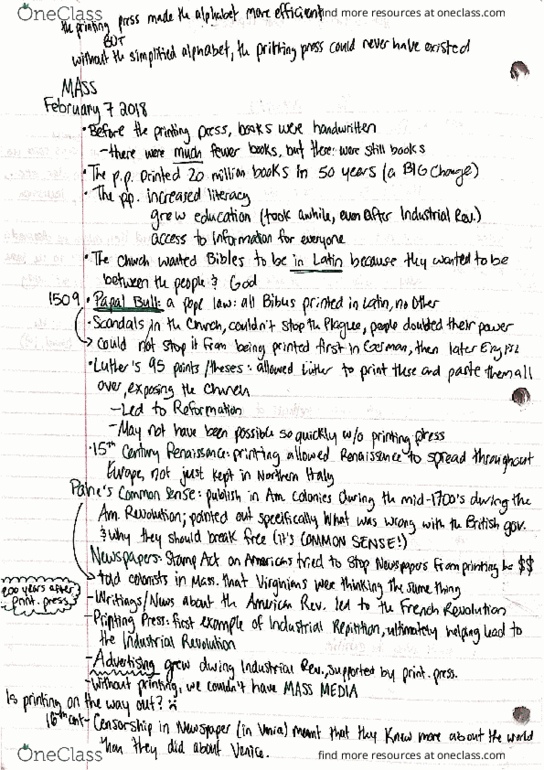 OneClass
find more resources at oneclass.com
the printing press made the alphabet more efficient
BUT
without the simplified alphabet, the printing press could never have existed
MASS
February 7 2018
• Before the printing press, books were handwritten
- there were much fewer books, but there were still books
• The p.p. printed 20 million books in 50 years (a BIG Change)
• The p.p. increased literacy
grew education (took awhile, even after Industrial Rev.)
access to information for everyone
• The Church wanted Bibles to be in Latin because they wanted to be
between the people & God
1509 • Papal Bull: a pope law: all Bibles printed in Latin, no other
• Scandals in the Church, couldn't stop the Plague, people doubted their power
→ could not stop it from being printed first in German, then later
• Luther's 95 points/theses: allowed Luther to print these and paste them all
over, exposing the Church
- Led to Reformation
- May not have been possible so quickly w/o printing press
• 15th Century Renaissance: printing allowed Renaissance to spread throughout
Europe, not just kept in Northern Italy
Paine's Common Sense: publish in Am colonies during the mid-1700's during the
Am. Revolution; pointed out specifically what was wrong with the British gov.
& why they should break free (it's COMMON SENSE!)
Newspapers: Stamp Act on Americans tried to stop Newspapers from printing bc $$
→ told colonists in Mass. that Virginians were thinking the same thing
200 years after
print. press
- Writings/News about the American Rev. led to the French Revolution
- Printing Press: first example of Industrial Repitition, ultimately helping lead to
the Industrial Revolution
- Advertising grew during Industrial Rev., supported by print. press.
- without printing, we couldn't have MASS MEDIA
Is printing on the way out?
16th cent - Censorship in Newspaper (in ) meant that they knew more about the world
than they did about Venice.
OneClass
find more resources at oneclass.com